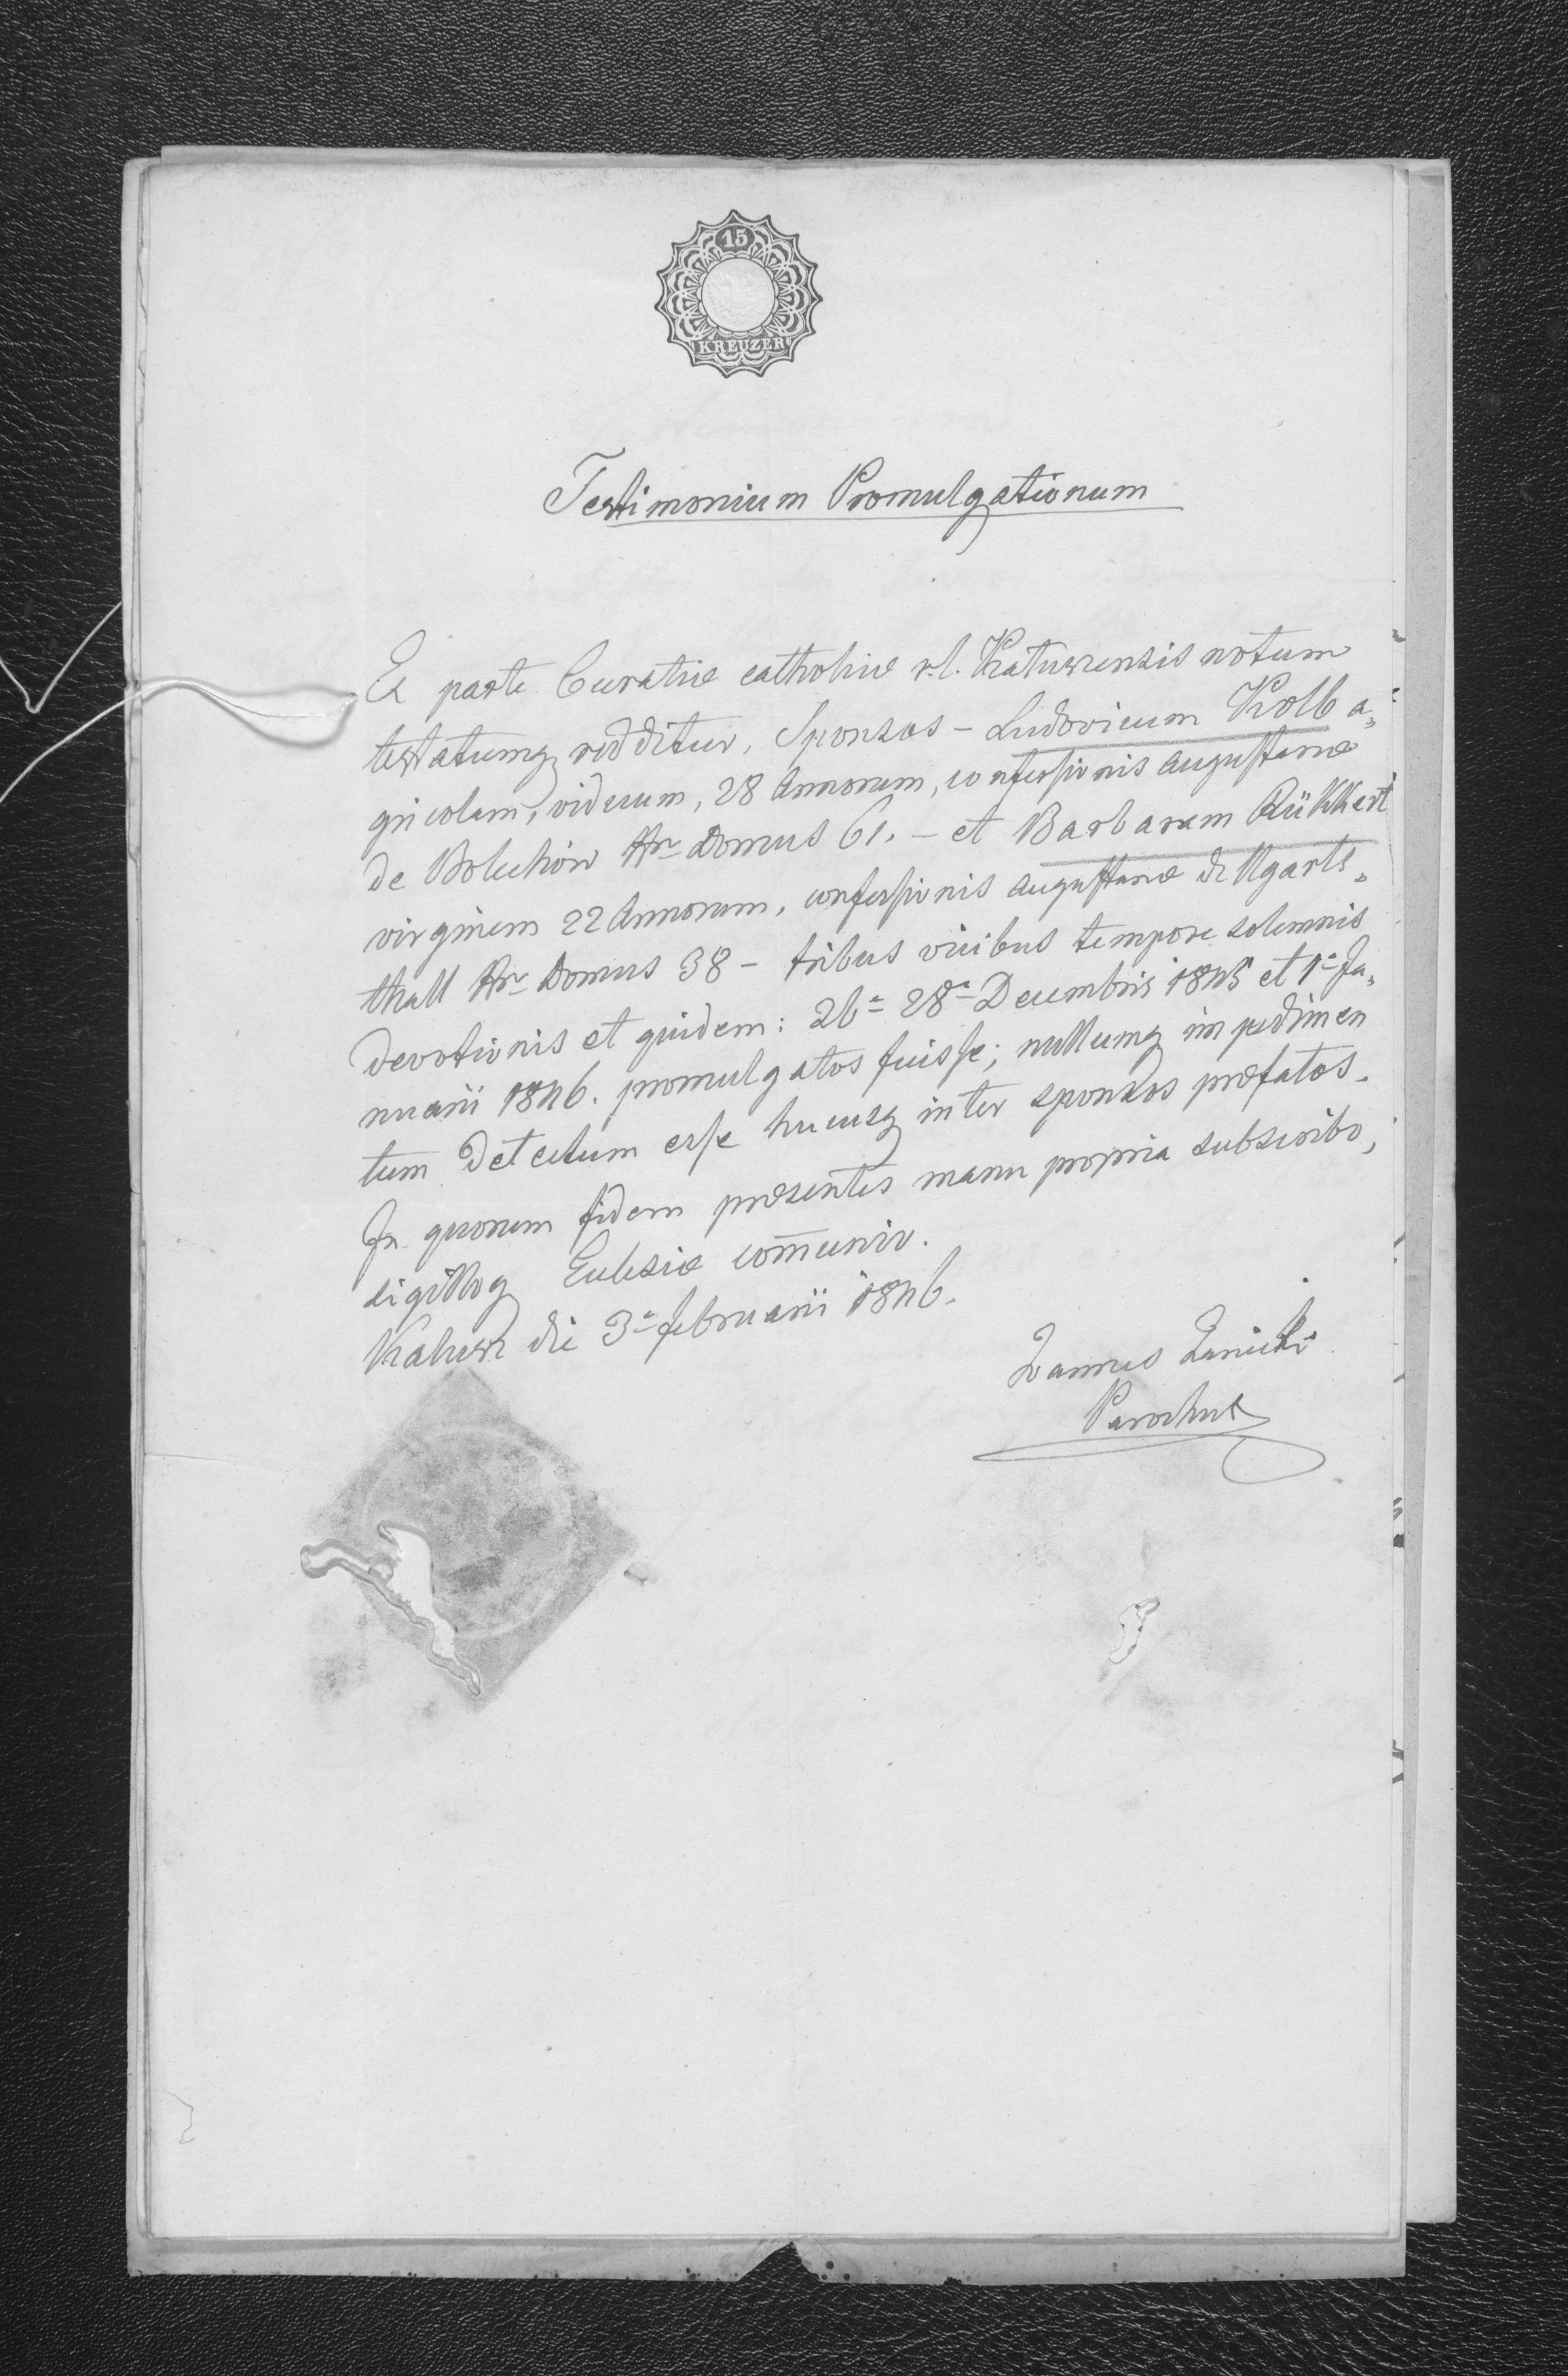 15
KREUZER
Testimonium Promulgationum
Ex parte Curatiæ catholicæ r.l. Katuszensis notum
testatumq redditur, Sponsos - Ludovicum Kolb a„
gricolam, viduum, 28 Annorum, confessionis augustanæ
de Bolechów Nr Domus 61. - et Barbaram Rükkert
virginem 22 Annorum, confessionis augustanæ de Ugarts„
thall Nr Domus 38 - tribus vicibus tempore solemnis
devotionis et quidem: 26a 28a Decembris 1845 et 1a Ja„
nuarii 1846. promulgatos fuisse; nullumq impedimen
tum detectum esse hucusq inter sponsos præfatos.
In quorum fidem præsentes manu propria subscribo,
sigilloq Eclesiæ com̄unio.
Kalusz die 3a Februarii 1846.
Parochus